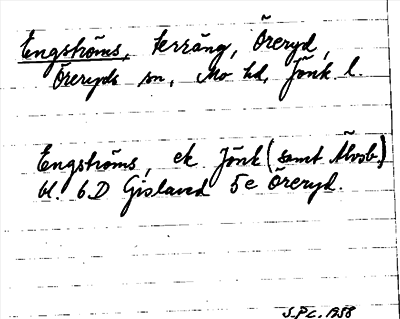 Engströms, terräng, Öreryd,
Öreryds sn, Mo hd, Jönk l.
Engströms, ek Jönk (samt Älvsb.)
bl. 6D Gislaved 5e Öreryd.
S.P.C. 1958